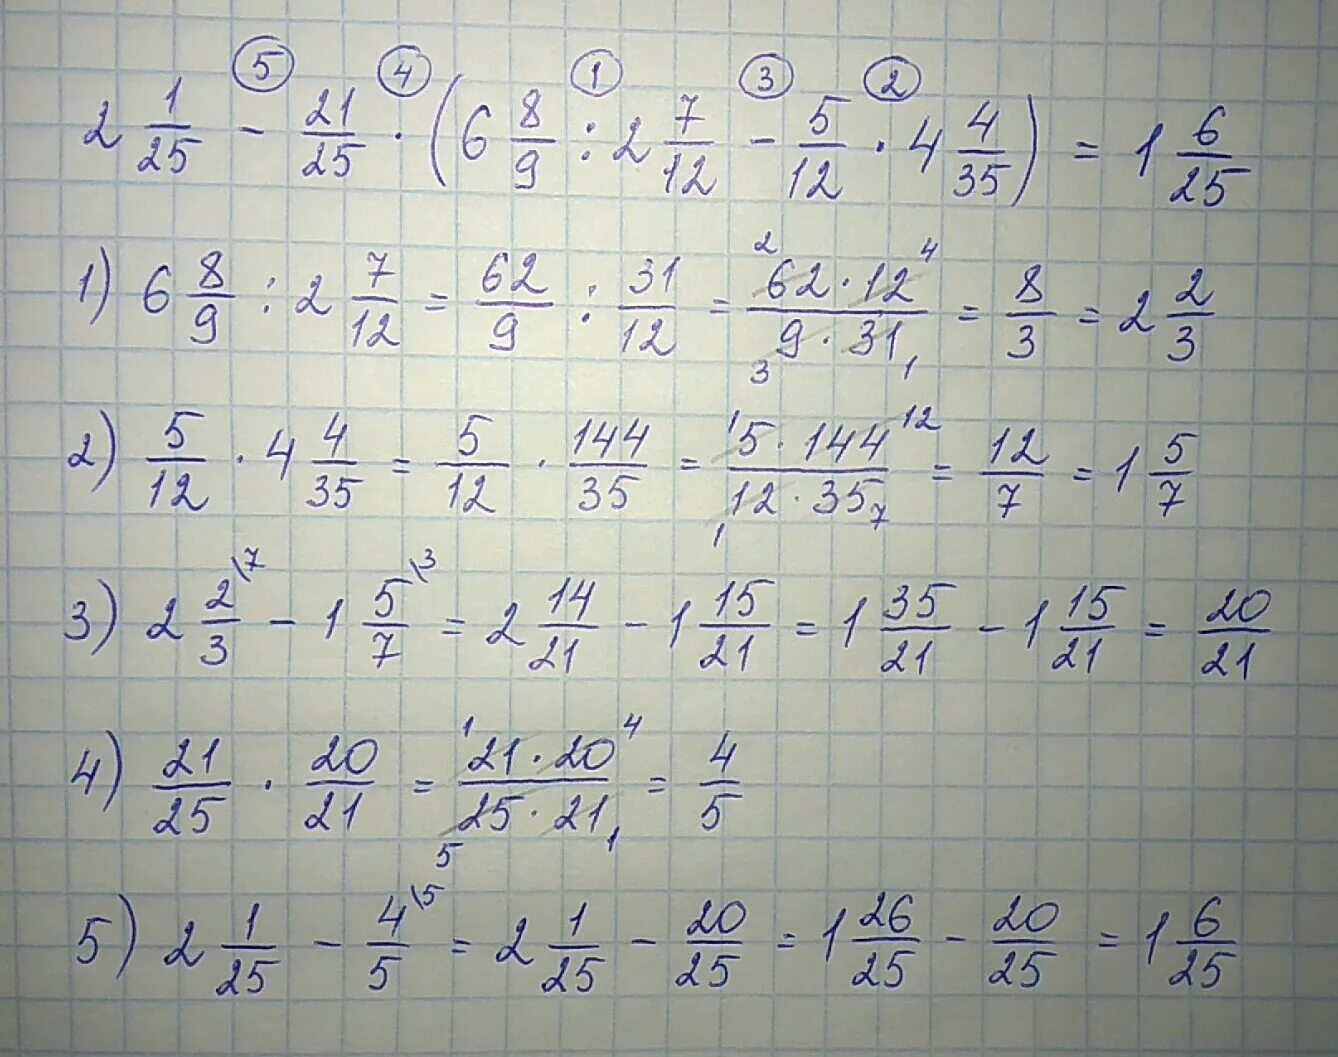 ⑤ ④ ① ③ ②
2 1/25 - 21/25 · (6 8/9 : 2 7/12 - 5/12 · 4 4/35) = 1 6/25
1) 6 8/9 : 2 7/12 = 62/9 : 31/12 = 62 · 12/9 · 31 = 8/3 = 2 2/3
2 4
3 1
2) 5/12 · 4 4/35 = 5/12 · 144/35 = 5 · 144/12 · 35 = 12/7 = 1 5/7
1 12
1 7
3) 2 2/3 \7 - 1 5/7 \3 = 2 14/21 - 1 15/21 = 1 35/21 - 1 15/21 = 20/21
4) 21/25 · 20/21 = 21 · 20/25 · 21 = 4/5
1 4
5 1
5) 2 1/25 - 4/5 \5 = 2 1/25 - 20/25 = 1 26/25 - 20/25 = 1 6/25